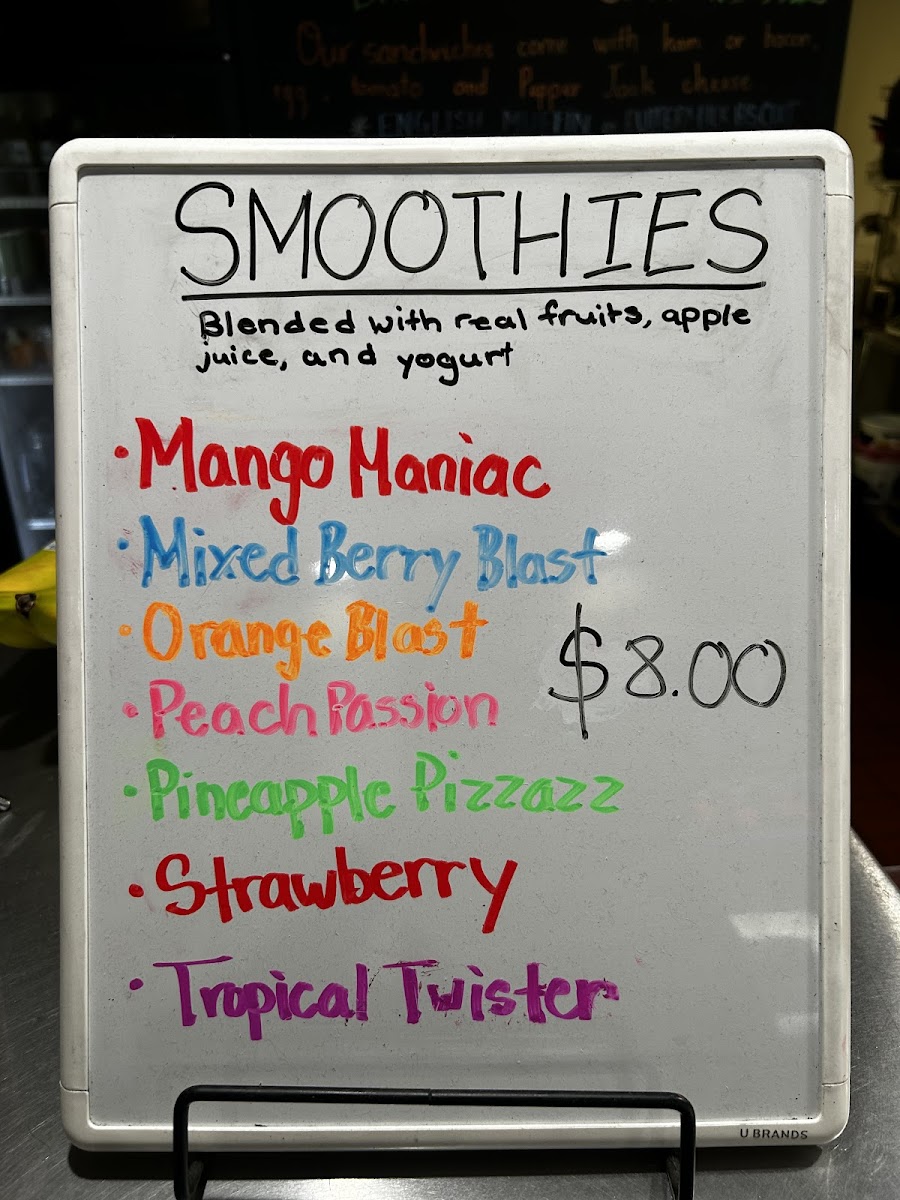 Our sandwiches come with ham or bacon,
egg, tomato and Pepper Jack cheese
*ENGLISH MUFFIN
SMOOTHIES
Blended with real fruits, apple
juice, and yogurt
• Mango Maniac
• Mixed Berry Blast
• Orange Blast
$8.00
• Peach Passion
• Pineapple Pizzazz
• Strawberry
• Tropical Twister
U BRANDS